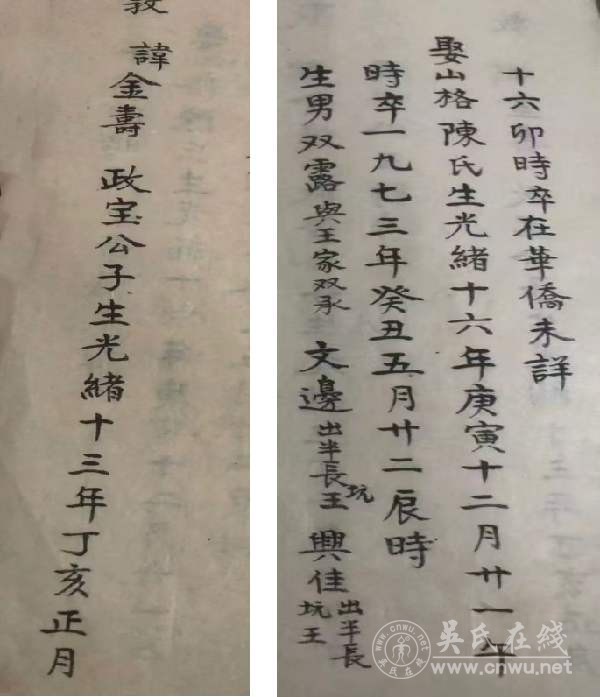 諱金壽 政宝公子生光緒十三年丁亥正月
十六卯時卒在華僑未詳
娶山格陳氏生光緒十六年庚寅十二月廿一午
時卒一九七三年癸丑五月廿二辰時
生男双露與王家双承 文邊出半長坑王 興佳出半長坑王
吳氏在线
www.cnwu.net